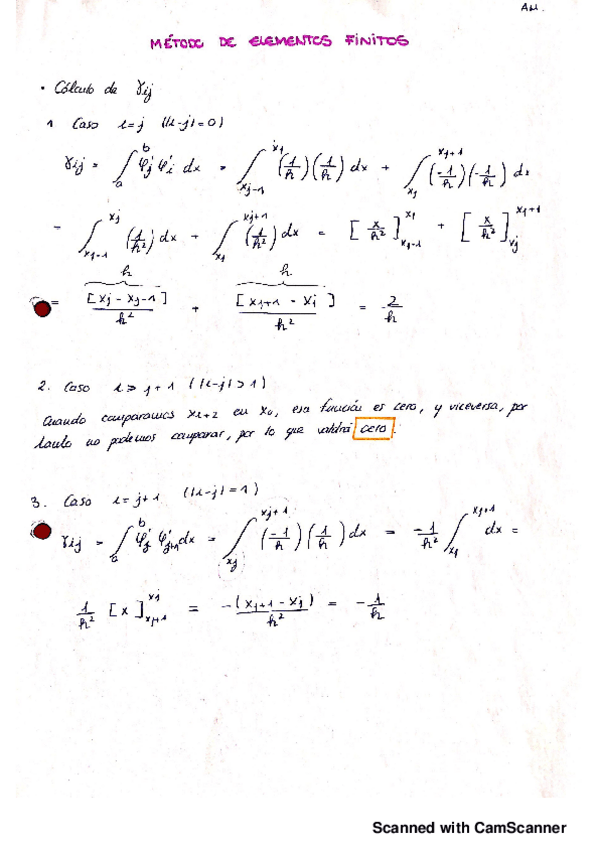 AM.
MÉTODO DE ELEMENTOS FINITOS
· Cálculo de γij
1 Caso i=j (|i-j|=0)
γij = ∫_a^b φ'j φ'i dx = ∫_{xj-1}^{xj} (1/h)(1/h) dx + ∫_{xj}^{xj+1} (-1/h)(-1/h) dx
= ∫_{xj-1}^{xj} (1/h²) dx + ∫_{xj}^{xj+1} (1/h²) dx = [x/h²]_{xj-1}^{xj} + [x/h²]_{xj}^{xj+1}
h h
= [xj - xj-1]/h² + [xj+1 - xj]/h² = 2/h
2. Caso i > j+1 (|i-j|>1)
Cuando comparamos xi+2 en xi, esa función es cero, y viceversa, por
tanto no podemos comparar, por lo que valdrá cero.
3. Caso i=j+1 (|i-j|=1)
γij = ∫_a^b φ'j φ'j+1 dx = ∫_{xj}^{xj+1} (-1/h)(1/h) dx = -1/h² ∫_{xj}^{xj+1} dx =
1/h² [x]_{xj+1}^{xj} = -(xj+1 - xj)/h² = -1/h
Scanned with CamScanner